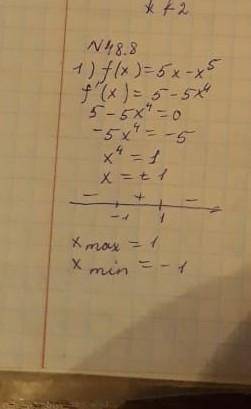 x ≠ 2
N48.8
1) f(x) = 5x - x⁵
f'(x) = 5 - 5x⁴
5 - 5x⁴ = 0
-5x⁴ = -5
x⁴ = 1
x = ± 1
- + -
-1 1
x max = 1
x min = -1